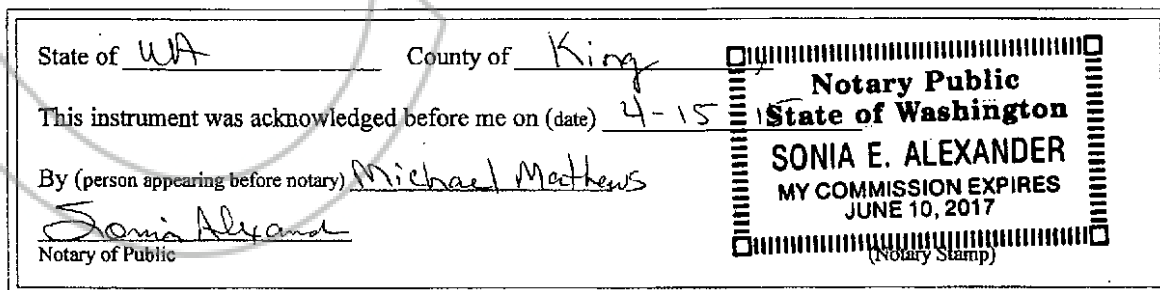 State of WA County of King
This instrument was acknowledged before me on (date) 4-15-15
By (person appearing before notary) Michael Matthews
Sonia Alexand
Notary of Public
Notary Public
State of Washington
SONIA E. ALEXANDER
MY COMMISSION EXPIRES
JUNE 10, 2017
(Notary Stamp)